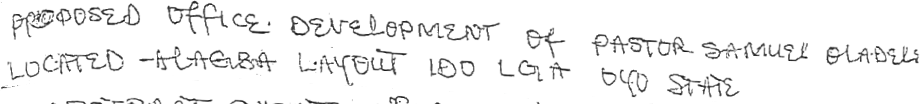 PROPOSED OFFICE. DEVELOPMENT OF PASTOR SAMUEL OLADELE
LOCATED ALAGBA LAYOUT IDO LGA OYO STATE